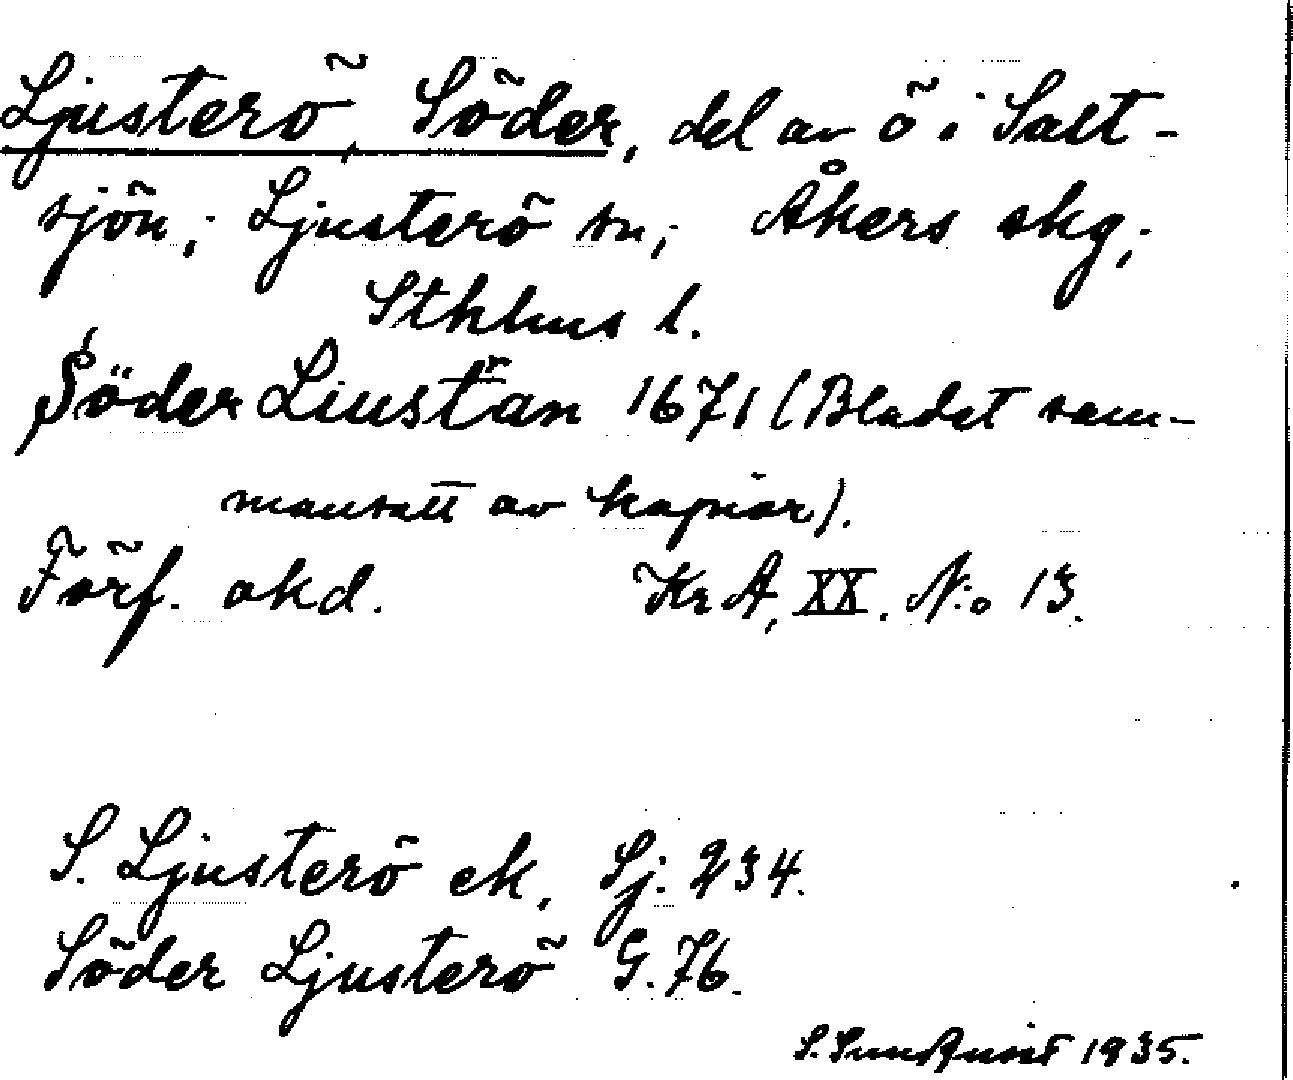 Ljusterö, Söder, del av ö i Salt-
sjön; Ljusterö sn; Åkers skg;
Sthlms l.
Söder Liustʳan 1671 (Bladet sam-
mansatt av kopior).
Förf. okd. KrA, XX. No 13.
S. Ljusterö ek. Sj. 234.
Söder Ljusterö G. 76.
S. Sundquist 1935.